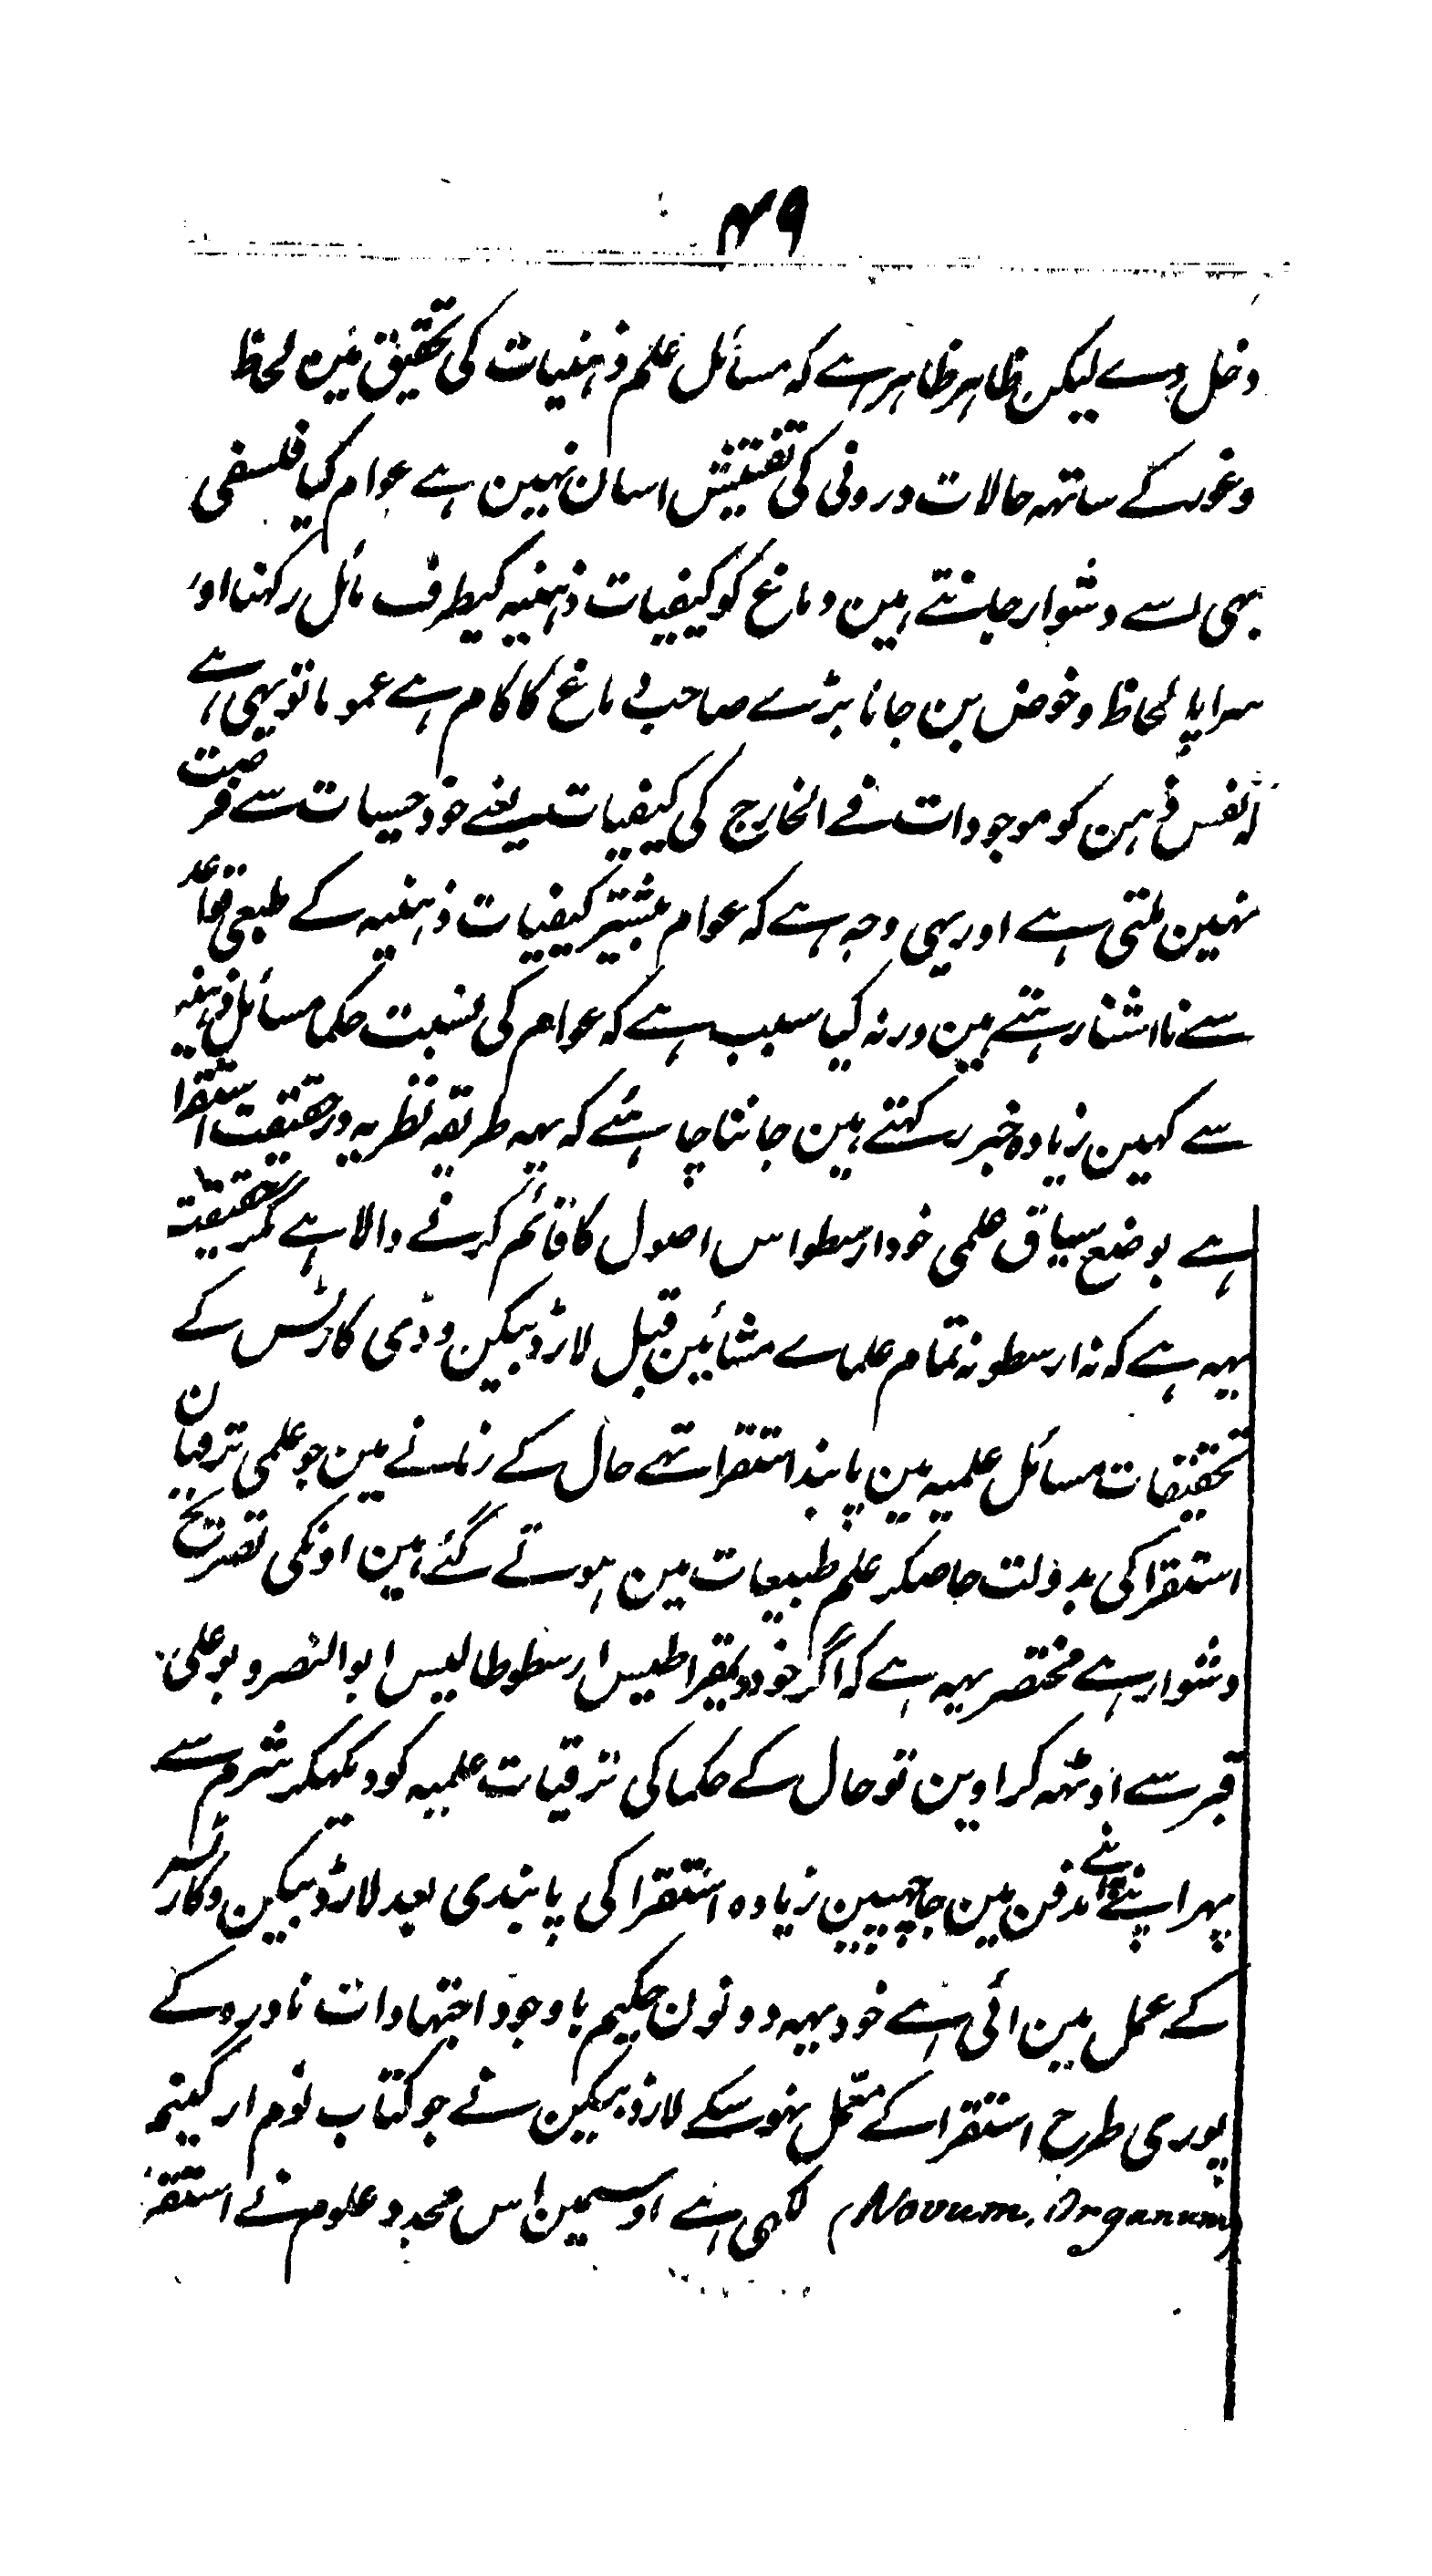 ۴۹
دخل دے لیکن ظاہر ظاہر ہے کہ مسائل علم ذہنیات کی تحقیق مین لحاظ
وغور کے ساتہہ حالات درونی کی تفتیش اسان نہین ہے عوام کیا فلسفی
بہی اسے دشوار جانتے ہین دماغ کو کیفیات ذہنیہ کیطرف مائل رکہنا اور
سراپا لحاظ وخوض بن جانا بڑے صاحب دماغ کا کام ہے عموما تو یہی ہے
کہ نفس ذہن کو موجودات فے الخارج کی کیفیات یعنے خود حسیات سے فرصت
نہین ملتی ہے اور یہی وجہ ہے کہ عوام بیشتر کیفیات ذہنیہ کے طبعی قواعد
سے نااشنا رہتے ہین ورنہ کیا سبب ہے کہ عوام کی نسبت حکما مسائل ذہنیہ
سے کہین زیادہ خبر رکہتے ہین جاننا چاہئے کہ یہہ طریقہ نظریہ درحقیقت استقرا
ہے بوضع سیاق علمی خود ارسطو اس اصول کا قائم کرنے والا ہے مگر حقیقت
یہہ ہے کہ نہ ارسطو نہ تمام علماے مشائین قبل لارڈ بیکن و ڈی کارٹس کے
تحقیقات مسائل علمیہ مین پابند استقرا تہے حال کے زمانے مین جو علمی ترقیان
استقرا کی بدولت خاصکر علم طبیعات مین ہوتے گئے ہین اونکی تصریح
دشوار ہے مختصر یہہ ہے کہ اگر خود دیمقراطیس ارسطوطالیس ابوالنصر و بوعلی
قبر سے اوٹہہ کر اوین تو حال کے حکما کی ترقیات علمیہ کو دیکہکر شرم سے
پہر اپنے اپنے مدفن مین جا چہپین زیادہ استقرا کی پابندی بعد لارڈ بیکن و کارٹس
کے عمل مین ائی ہے خود یہہ دونون حکیم باوجود اجتہادات نادرہ کے
پوری طرح استقرا کے متحمل نہو سکے لارڈ بیکن نے جو کتاب نوم ارگینم
(Novum. Organum) لکہی ہے اوسمین اس مجدد علوم نے استقرا